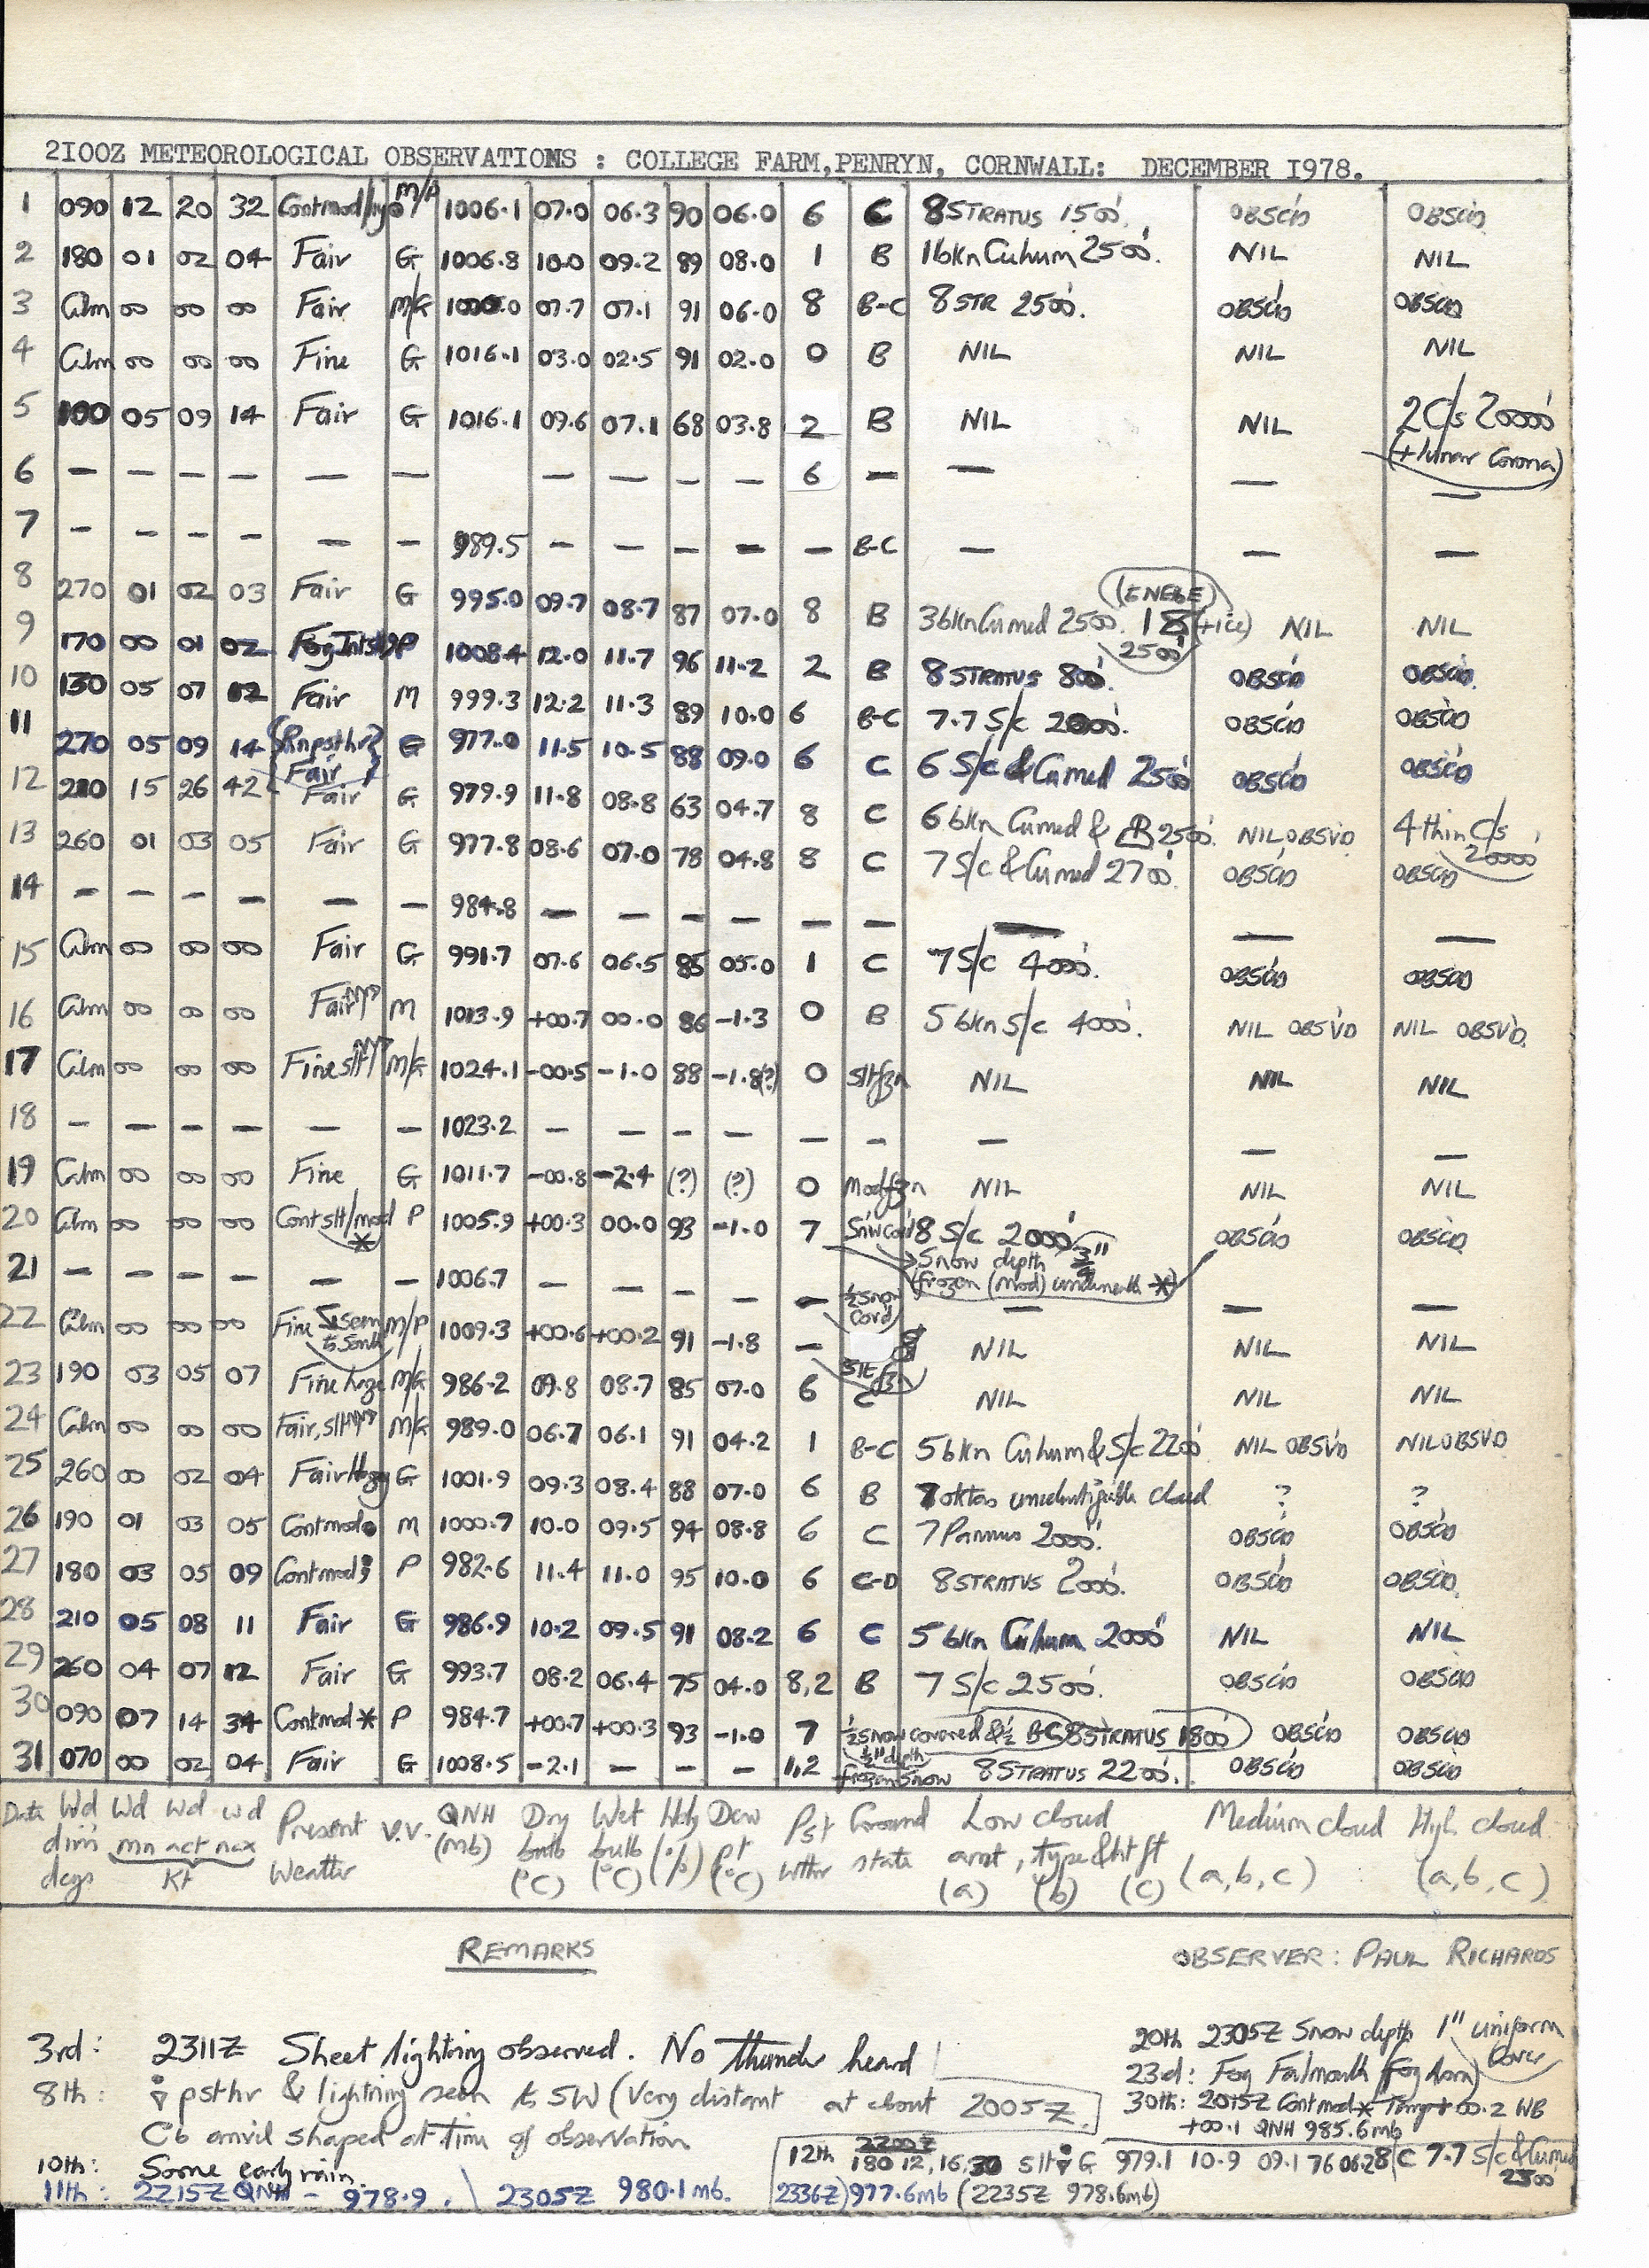 2100Z METEOROLOGICAL OBSERVATIONS : COLLEGE FARM, PENRYN, CORNWALL: DECEMBER 1978.
1 090 12 20 32 Contmod/ M/P 1006.1 07.0 06.3 90 06.0 6 C 8 STRATUS 1500'. OBSC'D OBSC'D
2 180 01 02 04 Fair G 1006.8 10.0 09.2 89 08.0 1 B 1 bkn Cuhum 2500'. NIL NIL
3 Calm 00 00 00 Fair M/G 07.7 07.1 91 06.0 8 B-C 8 STR 2500'. OBSC'D OBSC'D
4 Calm 00 00 00 Fine G 1016.1 03.0 02.5 91 02.0 0 B NIL NIL NIL
5 100 05 09 14 Fair G 1016.1 09.6 07.1 68 03.8 2 B NIL NIL 2 C/s 20000'
(+ lunar Corona)
6 — — — — — — — — — — 6 — — — —
7 — — — — — — 989.5 — — — — — B-C — — —
8 270 01 02 03 Fair G 995.0 09.7 08.7 87 07.0 8 B 3 bkn Cumed 2500'. 18 (+ice) 2500' NIL NIL
9 170 00 01 02 P 1008.4 12.0 11.7 96 11.2 2 B 8 STRATUS 800'. OBSC'D OBSC'D
10 130 05 07 12 Fair M 999.3 12.2 11.3 89 10.0 6 B-C 7.7 S/c 2000'. OBSC'D OBSC'D
11 270 05 09 14 {Rn psthr} Fair G 977.0 11.5 10.5 88 09.0 6 C 6 S/c & Cumed 2500' OBSC'D OBSC'D
12 210 15 26 42 Fair G 979.9 11.8 08.8 63 04.7 8 C 6 bkn Cumed & 2500'. NIL OBSV'D 4 thin C/s 20000'
13 260 01 03 05 Fair G 977.8 08.6 07.0 78 04.8 8 C 7 S/c & Cumed 2700'. OBSC'D OBSC'D
14 — — — — — — 984.8 — — — — — — — — —
15 Calm 00 00 00 Fair G 991.7 07.6 06.5 85 05.0 1 C 7 S/c 4000'. OBSC'D OBSC'D
16 Calm 00 00 00 Fair M 1013.9 +00.7 00.0 86 -1.3 0 B 5 bkn S/c 4000'. NIL OBSV'D NIL OBSV'D.
17 Calm 00 00 00 Fine slt M/G 1024.1 -00.5 -1.0 88 -1.8(?) 0 Slt fzn NIL NIL NIL
18 — — — — — — 1023.2 — — — — — — — — —
19 Calm 00 00 00 Fine G 1011.7 -00.8 -2.4 (?) (?) 0 Mod fzn NIL NIL NIL
20 Calm 00 00 00 Cont slt/mod * P 1005.9 +00.3 00.0 93 -1.0 7 Snw cov'd 8 S/c 2000' OBSC'D OBSC'D
Snow depth 3/4"
(frozen (mod) underneath *)
21 — — — — — — 1006.7 — — — — — ½ snow cov'd — — —
22 Calm 00 00 00 Fine M/P 1009.3 +00.6 +00.2 91 -1.8 — Slt fzn NIL NIL NIL
23 190 03 05 07 Fine haze M/G 986.2 09.8 08.7 85 07.0 6 C NIL NIL NIL
24 Calm 00 00 00 Fair, slt M/G 989.0 06.7 06.1 91 04.2 1 B-C 5 bkn Cuhum & S/c 2200' NIL OBSV'D NIL OBSV'D
25 260 00 02 04 Fair Hazy G 1001.9 09.3 08.4 88 07.0 6 B 7 oktas unidentifiable cloud ? ?
26 190 01 03 05 Contmod● M 1000.7 10.0 09.5 94 08.8 6 C 7 Pannus 2000'. OBSC'D OBSC'D
27 180 03 05 09 Contmod P 982.6 11.4 11.0 95 10.0 6 C-D 8 STRATUS 2000'. OBSC'D OBSC'D
28 210 05 08 11 Fair G 986.9 10.2 09.5 91 08.2 6 C 5 bkn Cuhum 2000' NIL NIL
29 260 04 07 12 Fair G 993.7 08.2 06.4 75 04.0 8,2 B 7 S/c 2500'. OBSC'D OBSC'D
30 090 07 14 34 Contmod * P 984.7 +00.7 +00.3 93 -1.0 7 ½ snow covered & ½ B-C 8 STRATUS 1800' OBSC'D OBSC'D
½" depth
31 070 00 02 04 Fair G 1008.5 -2.1 — — — 1,2 frozen snow 8 STRATUS 2200'. OBSC'D OBSC'D
Date Wd dirn degs Wd Wd Wd mn act max Kt Present Weather V.V. QNH (mb) Dry bulb (°C) Wet bulb (°C) Hdy (%) Dew pt (°C) Pst wthr Ground state Low cloud amt, type & ht ft (a) (b) (c) Medium cloud (a, b, c) High cloud (a, b, c)
REMARKS
OBSERVER: PAUL RICHARDS
3rd: 2311Z Sheet lightning observed. No thunder heard
8th: psthr & lightning seen to SW (Very distant at about 2005Z.
Cb anvil shaped at time of observation
10th: Some early rain.
11th: 2215Z QNH – 978.9. 2305Z 980.1 mb.
12th 2200Z 180 12, 16, 30 slt G 979.1 10.9 09.1 76 06.2 8 C 7.7 S/c & Cumed 2500'
2336Z) 977.6mb (2235Z 978.6mb)
20th 2305Z Snow depth 1" uniform cover
23rd: Fog Falmouth (fog horn)
30th: 2015Z Cont mod * Temp +00.2 WB
+00.1 QNH 985.6mb